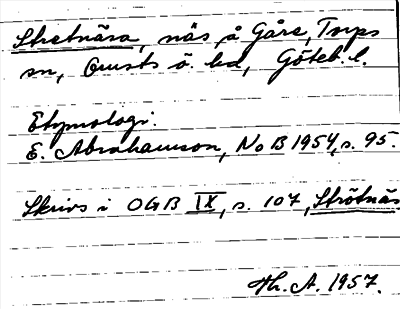 Stretnära, näs å Gåre, Torps
sn, Orusts ö. hd, Göteb. l.
Etymologi.
E. Abrahamson, NoB 1954, s. 95.
Skrivs i OGB IX, s. 107, Strötnäs
Th. A. 1957.